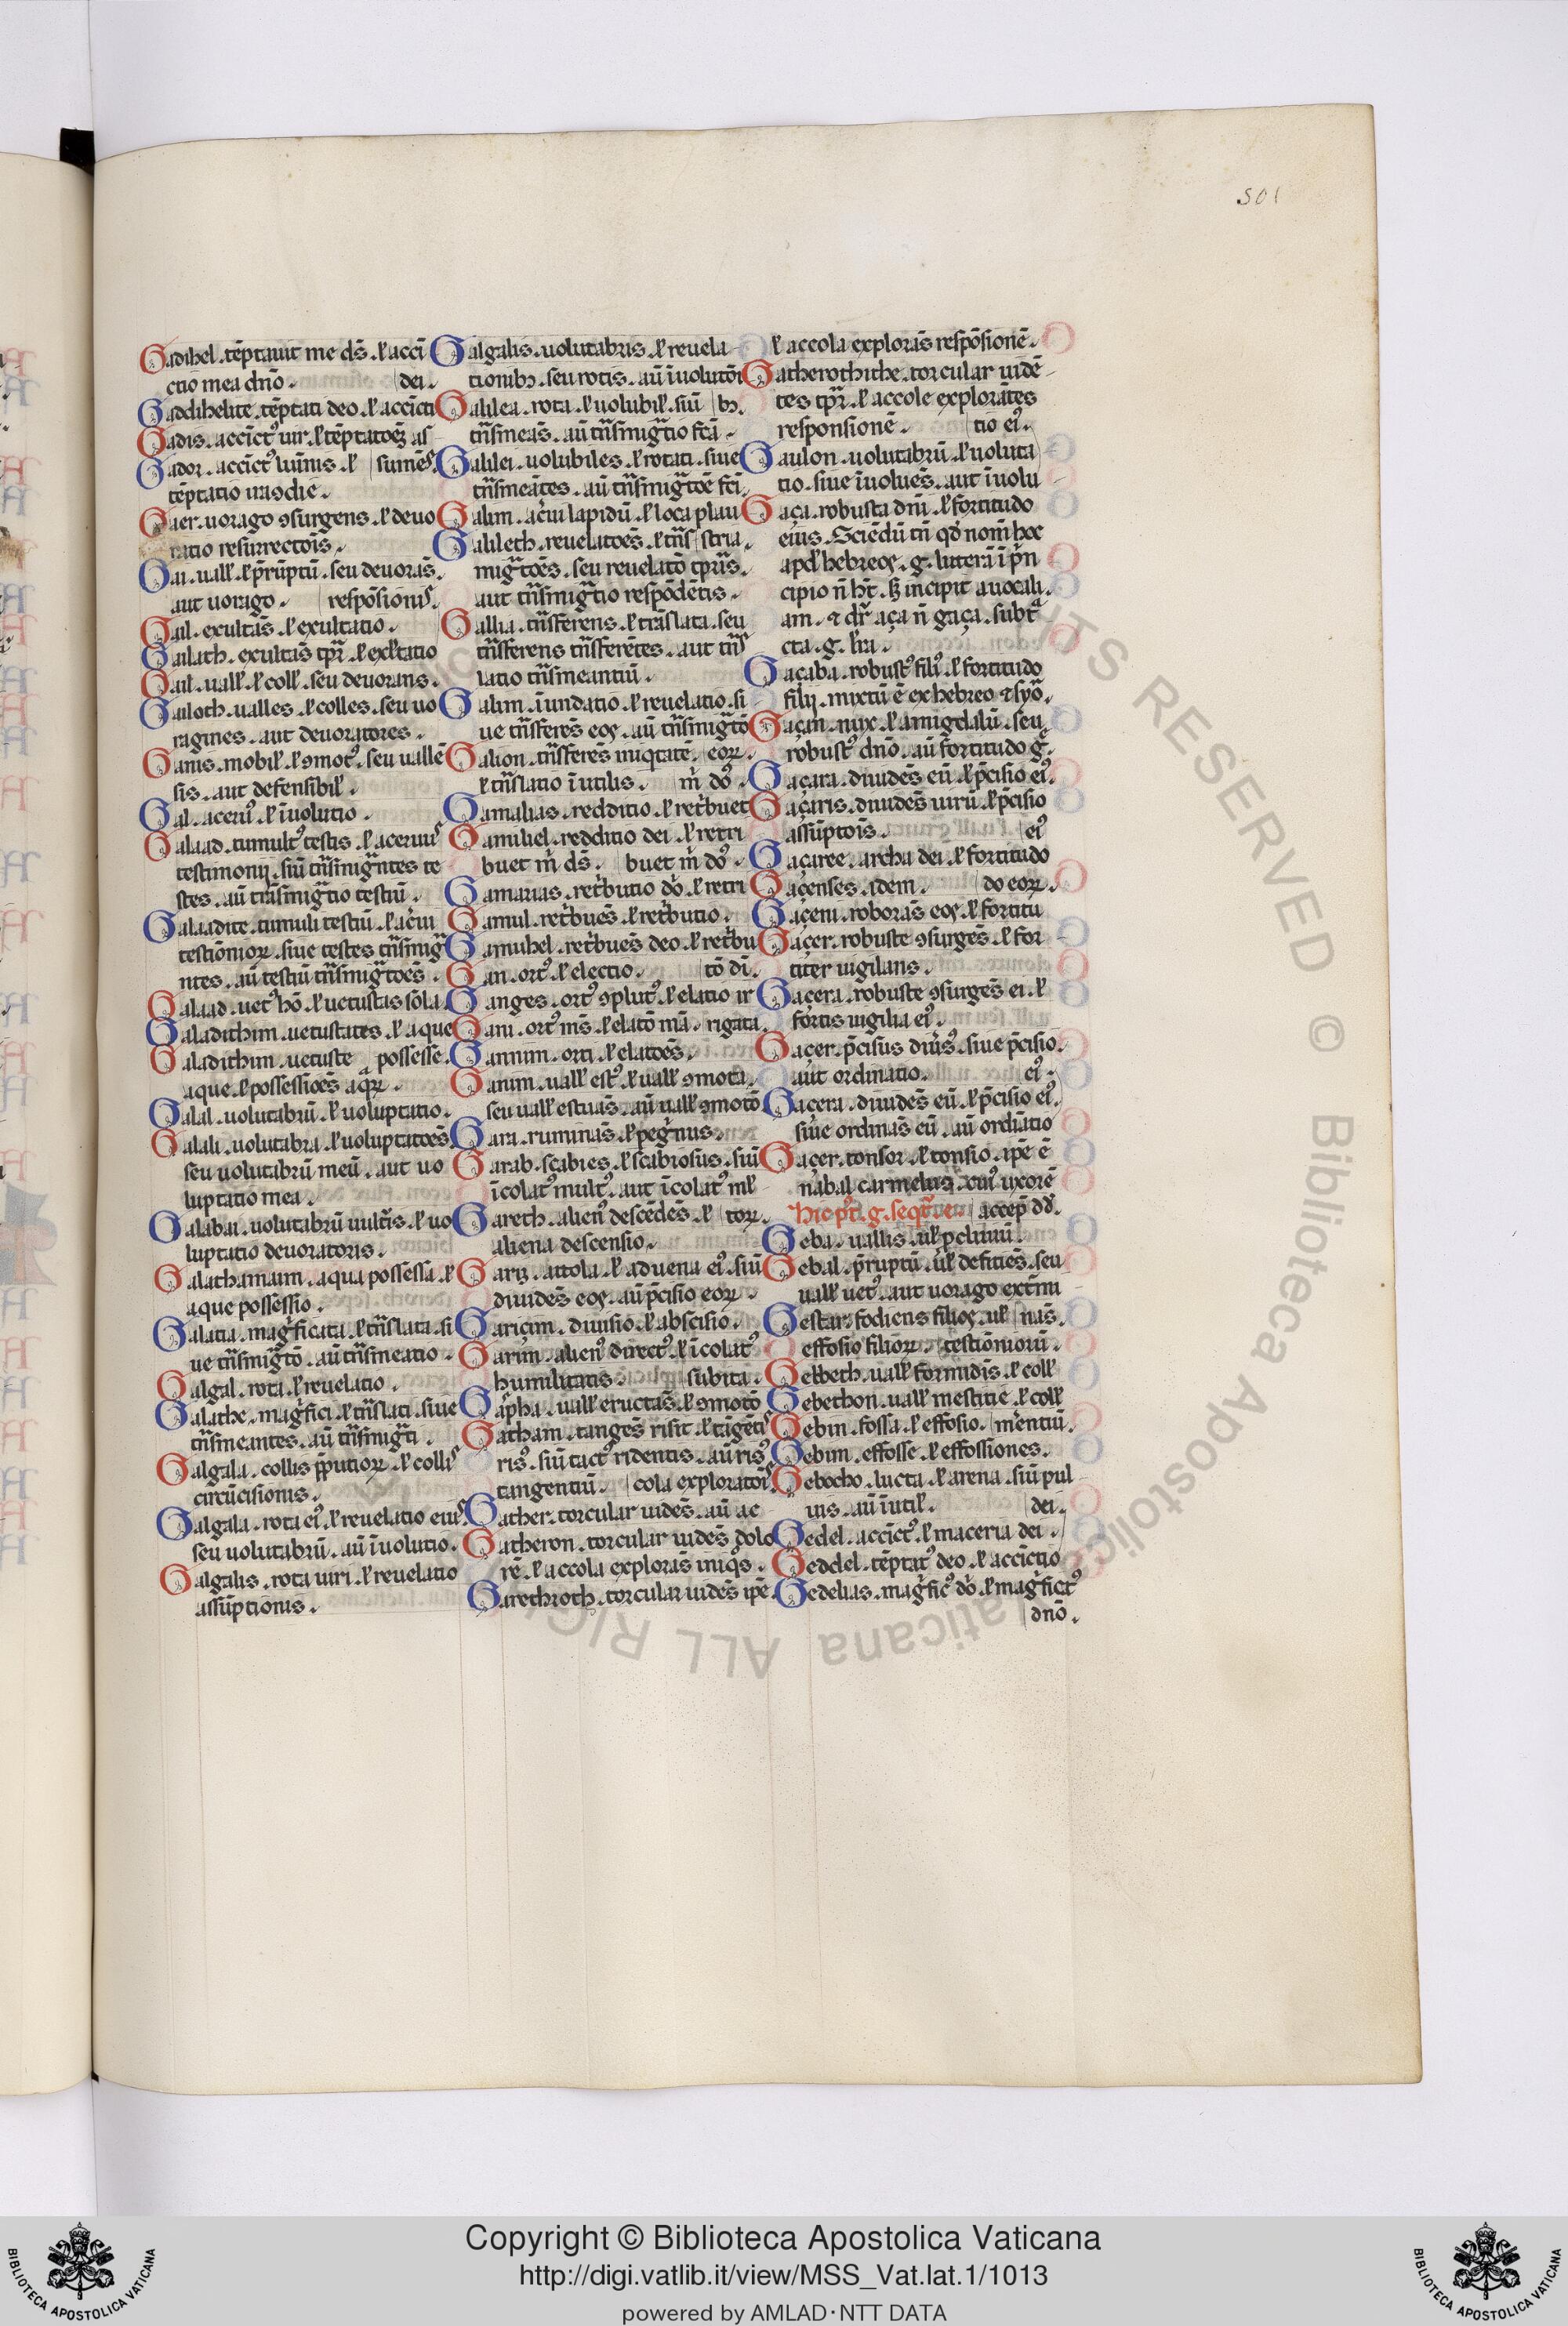 501
Gadihel . tēptauit me ds̄ . ł accī
ctio mea dn̄o . dei .
Gaddihelite . tēptati deo . ł accicti
Gadis . accict᷒ uir . ł tēptatoēs as
Gador . accict᷒ luīnis . ł sumēs .
tēptatio
Gaer . uorago ꝯsurgens . ł deuo
ratio resurrectōis .
Gai . uall̄ . ł p̄rūptū . seu deuorās .
aut uorago . respōsionis .
Gail . exultās . ł exultatio .
Gailath . exultās tp̄r . ł exl̄tatio
Gail . uall̄ . ł coll̄ . seu deuorans .
Gailoth . ualles . ł colles . seu uo
ragines . aut deuoratores .
Ganis . mobil̄ . ł ꝯmot᷒ . seu uallē
sis . aut defensibil̄ .
Gal . aceru᷒ . ł īuolutio .
Galaad . tumult᷒ testis . ł aceruus
testimonij . siū tn̄smigr̄ntes te
stes . aū trāsmigr̄tio testiū .
Galaadite . tumuli testiū . ł ac̄ui
testōnioꝝ . siue testes tn̄smigr̄
ntes . aū testiū tn̄smigr̄toēs .
Galaad . uet᷒ hō . ł uetustas sola .
Galadithim . uetustates . ł aque
Galadithim . uetuste possesse .
aque . ł possessiōes aq̄ꝝ .
Galal . uolutabrū . ł uoluptatio .
Galali . uolutabra . ł uoluptatoēs
seu uolutabrū meū . aut uo
luptatio mea .
Galabai . uolutabrū uultis . ł uo
luptatio deuoratoris .
Galathamaim . aqua possessa . ł
aque possessio .
Galatia . magr̄ficata . ł tn̄slata . si
ue tn̄smigr̄tō . aū tn̄smeatio .
Galgal . rota . ł reuelatio .
Galathe . magr̄fici . ł tn̄slati . siue
tn̄smeantes . aū tn̄smigr̄ti .
Galgala . collis p̄putioꝝ . ł collis
circūcisionis .
Galgala . rota ei᷒ . ł reuelatio eius .
seu uolutabrū . aū īuolutio .
Galgalis . rota uiri . ł reuelatio
assūptionis .
Galgalis . uolutabris . ł reuela
tionibꝫ . seu rotis . aū īuolutōi
Galilea . rota . ł uolubil̄ . siū bꝫ .
tn̄smeās . aū tn̄smigr̄tio fc̄ā .
Galilei . uolubiles . ł rotati . siue
tn̄smeātes . aū tn̄smigr̄toē fc̄ī .
Galim . ac̄ui lapidū . ł loca plau
Galileth . reuelatoēs . ł tn̄s stria .
migr̄toēs . seu reuelatō tp̄ris .
aut tn̄smigr̄tio respōdētis .
Gallia . tn̄sferens . ł trāslata . seu
tn̄sferens tn̄sferētes . aut tn̄s
latio tn̄smeantiū .
Galim . īundatio . ł reuelatio . si
ue tn̄sferēs eos . aū tn̄smigr̄tō
Galion . tn̄sferēs iniq̄tatē . eoꝝ .
ł tn̄slatio īutilis . m̄ dō .
Gamalias . redditio . ł retbuet
Gamiliel . redditio dei . ł retri
buet m̄ ds̄ . buet m̄ dō .
Gamarias . ret̄butio dō . ł retri
Gamul . ret̄buēs . ł ret̄butio .
Gamuhel . ret̄buēs deo . ł ret̄bu
Gan . ort᷒ . ł electio . tō dī .
Ganges . ort᷒ ꝯplut᷒ . ł elatio ir
Gani . ort᷒ ms̄ . ł elatō mā . rigata .
Gannim . orti . ł elatoēs .
Ganim . uall̄ est᷒ . ł uall̄ ꝯmota .
seu uall̄ estuās . aū uall̄ ꝯmotō
Gara . ruminās . ł pegr̄nus .
Garab . scabies . ł scabiosus . siū
īcolat᷒ mult᷒ . aut īcolat᷒ ml̄
Gareth . alien᷒ descēdēs . ł toꝝ .
aliena descensio .
Gariz . attola . ł aduena ei᷒ . siū
diuidēs eos . aū p̄cisio eoꝝ .
Garicim . diuisio . ł abscisio .
Garim . alien᷒ direct᷒ . ł īcolat᷒
humilitatis . subita .
Gapha . uall̄ eructās . ł ꝯmotō
Gatham . tangēs risit . ł tāgētis
ris᷒ . siū tact᷒ ridentis . aū ris᷒
tangentiū . cola exploratōis
Gather . torcular uidēs . aū ac
Gatheron . torcular uidēs dolo
rē . ł accola explorās iniq̄s .
Garethroth . torcular uidēs ip̄e .
ł accola explorās respōsionē .
Gatherothithe . torcular uidē
tes tp̄r . ł accole explorātes
responsionē . tio ei᷒ .
Gaulon . uolutabrū . ł uoluta
tio . siue īuoluēs . aut īuolu
Gaça . robusta dn̄i . ł fortitudo
eius . Sciēdū tn̄ qd̄ nom̄ hoc
apd̄ hebreos . g . litterā ī p̄n
cipio n̄ ht̄ . ꝫ incipit a uocali .
am . ⁊ dr̄ aça n̄ gaça . subtª
cta . g . lr̄a .
Gaçaba . robust᷒ fili᷒ . ł fortitudo
filij . mixtū ē ex hebreo ⁊ syō .
Gaçan . nux . ł amigdalū . seu
robust᷒ dn̄o . aū fortitudo ḡ .
Gaçara . diuidēs eū . ł p̄cisio ei᷒ .
Gaçaris . diuidēs uirū . ł p̄cisio
assūptōis . ei᷒
Gaçaree . archa dei . ł fortitudo
Gaçenses . idem . do eoꝝ .
Gaçem . roborās eos . ł fortitu
Gaçer . robuste ꝯsurgēs . ł for
titer uigilans .
Gaçera . robuste ꝯsurgēs ei . ł
fortis uigilia ei᷒ .
Gaçer . p̄cisus diuis᷒ . siue p̄cisio .
aut ordinatio . ei᷒ .
Gacera . diuidēs eū . ł p̄cisio ei᷒ .
siue ordinās eū . aū ordīatio
Gaçer . tonsor . ł tonsio . ip̄e ē
nabal carmelus . cui᷒ uxorē
Hic p᷒t . g . seqt̄r . e . accep̄ dd̄ .
Geba . uallis . ul̄ pcliuiū .
Gebal . p̄ruptū . ul̄ deficiēs . seu
uall̄ uet᷒ . aut uorago ext̄mi
Gestar . fodiens filios . ul̄ nas̄ .
effosio filioꝝ . testōniorū .
Gelbeth . uall̄ formidīs . ł coll̄
Gebethon . uall̄ mestitie . ł coll̄
Gebin . fossa . ł effosio . mentiū .
Gebim . effosse . ł effossiones .
Gebocho . lucta . ł arena . siū pul
uis . aū īutil̄ . dei .
Gedel . accict᷒ . ł maceria dei .
Geddel . tēptat᷒ deo . ł accictio
Gedelias . magr̄fic᷒ dō . ł magr̄fict᷒
dn̄o .
Copyright © Biblioteca Apostolica Vaticana
http://digi.vatlib.it/view/MSS_Vat.lat.1/1013
powered by AMLAD·NTT DATA
BIBLIOTECA APOSTOLICA VATICANA
BIBLIOTECA APOSTOLICA VATICANA
ALL RIGHTS RESERVED © Biblioteca Apostolica Vaticana